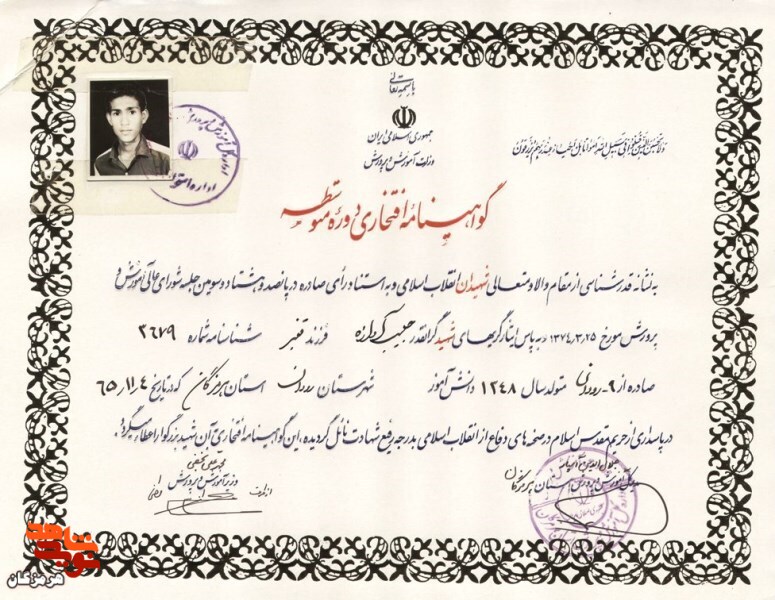 باسمه تعالی
جمهوری اسلامی ایران
وزارت آموزش و پرورش
ولا تحسبن الذین قتلوا فی سبیل الله امواتا بل احیاء عند ربهم یرزقون
گواهینامهٔ افتخاری دوره متوسطه
به نشانه قدرشناسی از مقام والا و متعالی شهیدان انقلاب اسلامی و به استناد رأی صادره در پانصد و هشتاد و سومین جلسه شورای عالی آموزش و
پرورش مورخ ۱۳۷۴/۳/۲۵ به پاس ایثارگریهای شهید گرانقدر حبیب فرزند قنبر شناسنامه شماره ۲۶۷۹
صادره از ۹-رودان متولد سال ۱۳۴۸ دانش آموز شهرستان رودان استان هرمزگان که در تاریخ ۶۵/۱۱/۴
در پاسداری از حریم مقدس اسلام در صحنه های دفاع از انقلاب اسلامی به درجه رفیع شهادت نائل گردیده، این گواهینامه افتخاری آن شهید بزرگوار اعطا میگردد.
مدیر کل آموزش و پرورش استان هرمزگان
محمد علی نجفی
وزیر آموزش و پرورش
نوید شاهد
هرمزگان